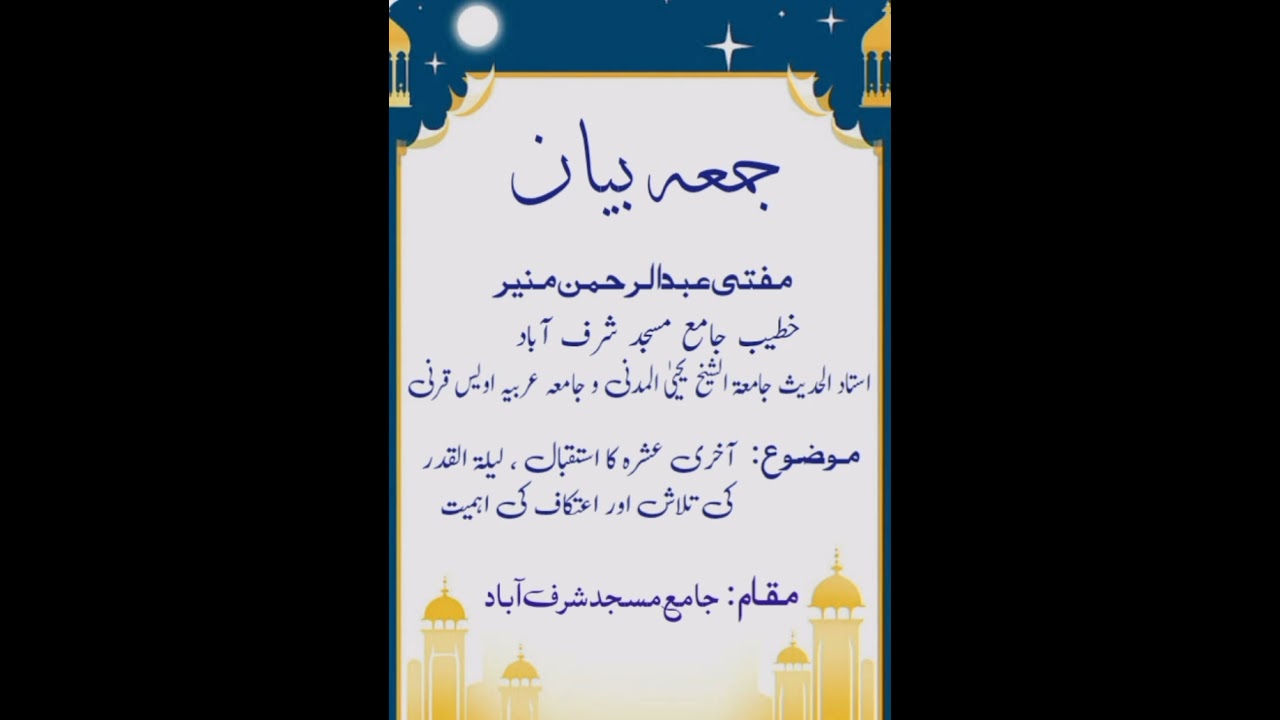 جمعہ بیان
مفتی عبدالرحمن منیر
خطیب جامع مسجد شرف آباد
استاد الحدیث جامعۃ الشیخ یحیٰی المدنی و جامعہ عربیہ اویس قرنی
موضوع: آخری عشرہ کا استقبال ، لیلۃ القدر
کی تلاش اور اعتکاف کی اہمیت
مقام: جامع مسجد شرف آباد